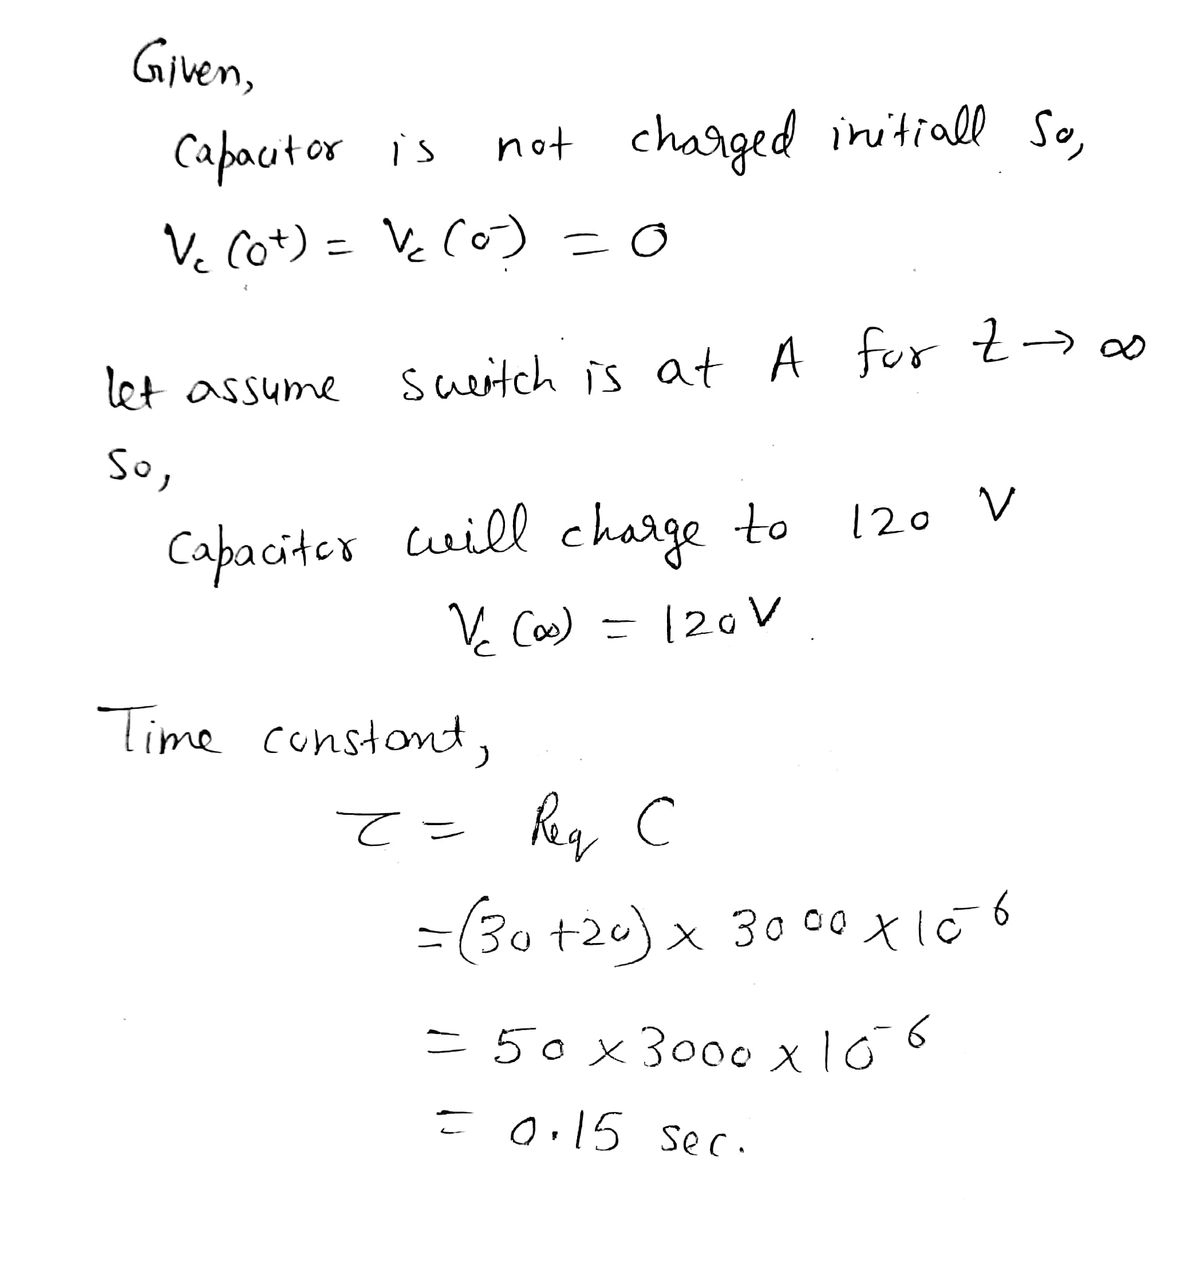 Given,
Capacitor is not charged initiall So,
Vc (0+) = Vc (0-) = 0
let assume switch is at A for t → ∞
So,
Capacitor will charge to 120 V
Vc (∞) = 120V
Time constant,
τ = Req C
=(30+20) × 3000 × 10^-6
= 50 × 3000 × 10^-6
= 0.15 sec.